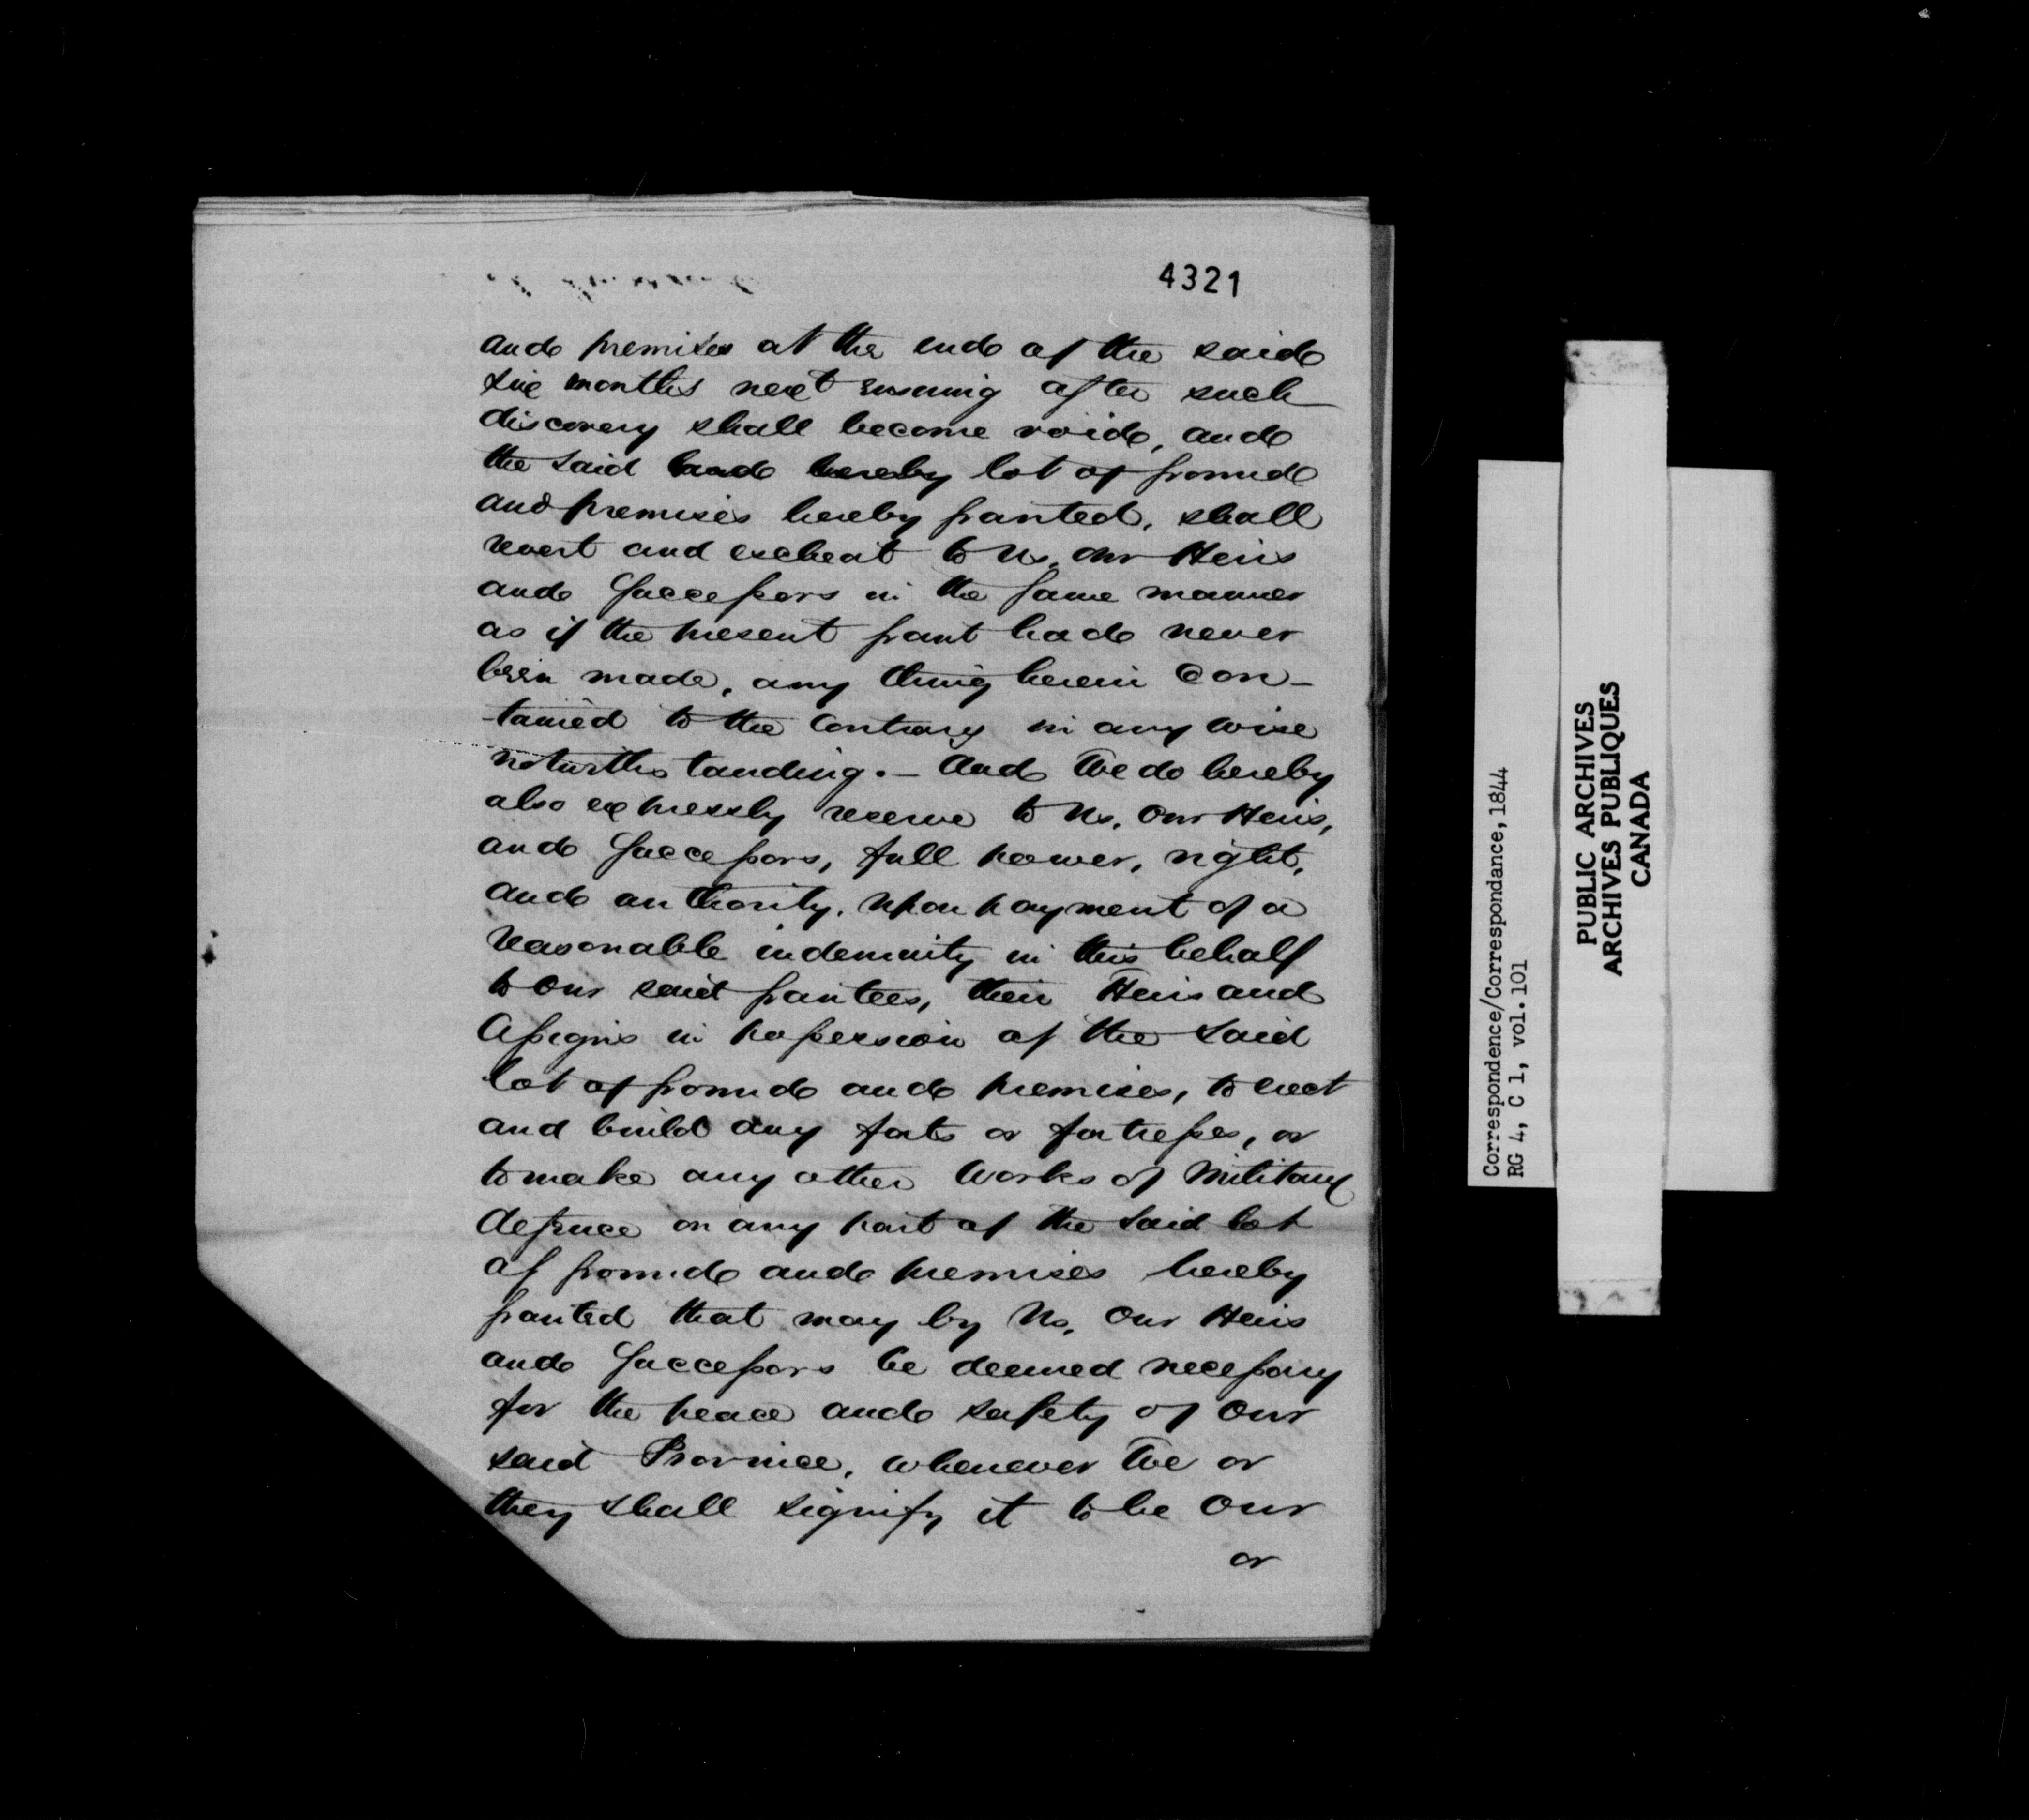 4321
and premises at the end of the said
six months next ensuing after such
discovery shall become void, and
the said land hereby lot of ground
and premises hereby granted, shall
revert and escheat to Us, our Heirs
and Successors in the same manner
as if the present grant had never
been made, any thing herein Con-
tained to the Contrary in any wise
notwithstanding. — And We do hereby
also expressly reserve to Us, Our Heirs,
and Successors, full power, right,
and authority, upon payment of a
reasonable indemnity in this behalf
to Our said grantees, their Heirs and
Assigns in possession of the said
lot of ground and premises, to erect
and build any forts or fortresses, or
to make any other Works of Military
defence on any part of the said lot
of ground and premises hereby
granted that may by Us, Our Heirs
and Successors be deemed necessary
for the peace and safety of Our
said Province, whenever We or
they shall signify it to be Our
or
Correspondence/Correspondance, 1844
RG 4, C 1, vol. 101
PUBLIC ARCHIVES
ARCHIVES PUBLIQUES
CANADA